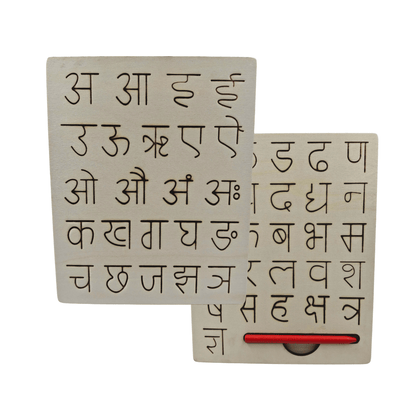 अ आ इ ई
उ ऊ ऋ ए ऐ
ओ औ अं अः
क ख ग घ ङ
च छ ज झ ञ
ड ढ ण
द ध न
ब भ म
ल व श
स ह क्ष त्र
ज्ञ